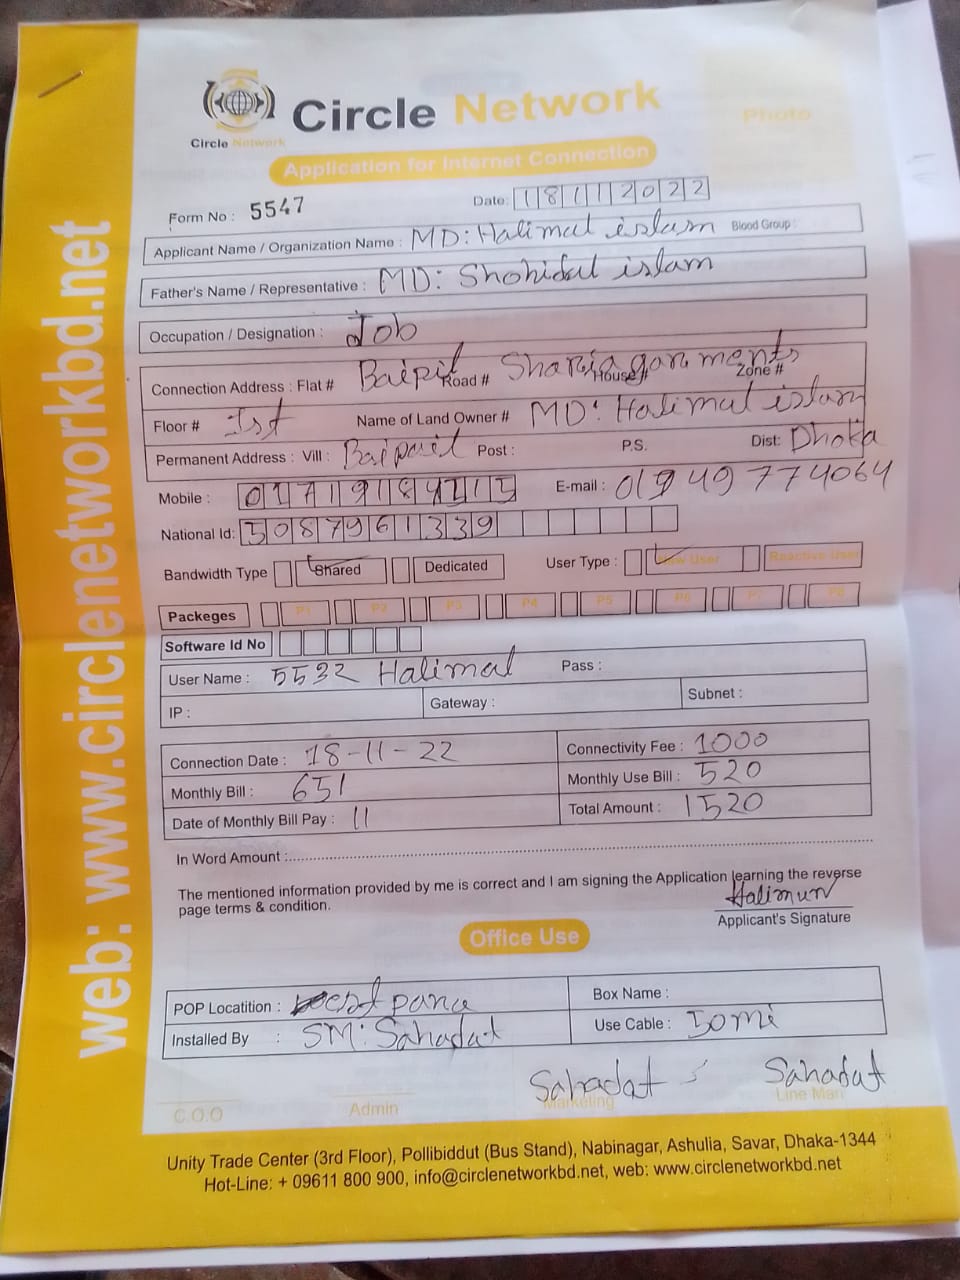 web: www.circlenetworkbd.net
Circle Network
Circle Network
Photo
Application for Internet Connection
Form No : 5547
Date: 18112022
Applicant Name / Organization Name : MD: Halimal islam Blood Group :
Father's Name / Representative : MD: Shohidul islam
Occupation / Designation : Job
Connection Address : Flat # Baipil Road # Sharija garments House # Zone #
Floor # 1st Name of Land Owner # MD: Halimal islam
Permanent Address : Vill : Baipail Post : P.S. Dist: Dhaka
Mobile : E-mail : 01949774064
National Id: 5087961339
Bandwidth Type Shared Dedicated User Type : New User Reactive User
Packeges P1 P2 P3 P4 P5 P6 P7 P8
Software Id No
User Name : 5532 Halimal Pass :
IP : Gateway : Subnet :
Connection Date : 18-11-22 Connectivity Fee : 1000
Monthly Bill : 651 Monthly Use Bill : 520
Date of Monthly Bill Pay : 11 Total Amount : 1520
In Word Amount :
The mentioned information provided by me is correct and I am signing the Application learning the reverse
page terms & condition.
Halimun
Applicant's Signature
Office Use
POP Locatition : Box Name :
Installed By : SM: Sahadat Use Cable : 50 mi
Sahadat Sahadat
C.O.O Admin Marketing Line Man
Unity Trade Center (3rd Floor), Pollibiddut (Bus Stand), Nabinagar, Ashulia, Savar, Dhaka-1344
Hot-Line: + 09611 800 900, info@circlenetworkbd.net, web: www.circlenetworkbd.net